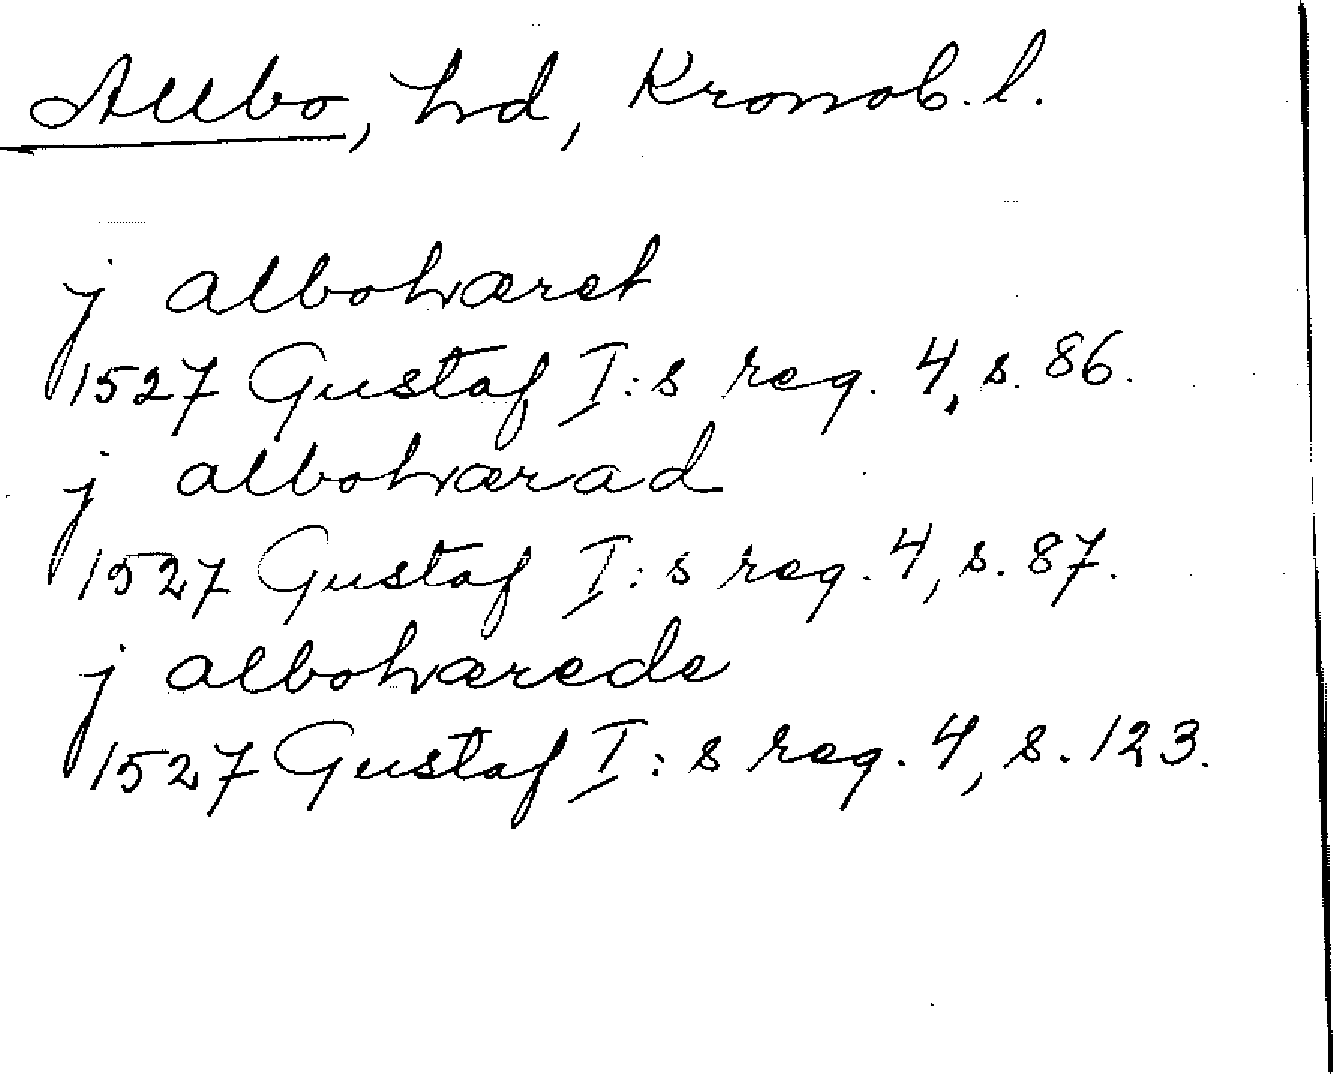 Allbo, hd, Kronob. l.
j albohæret
1527 Gustaf I:s reg. 4, s. 86.
j albohærad
1527 Gustaf I:s reg. 4, s. 87.
j albohærede
1527 Gustaf I:s reg. 4, s. 123.